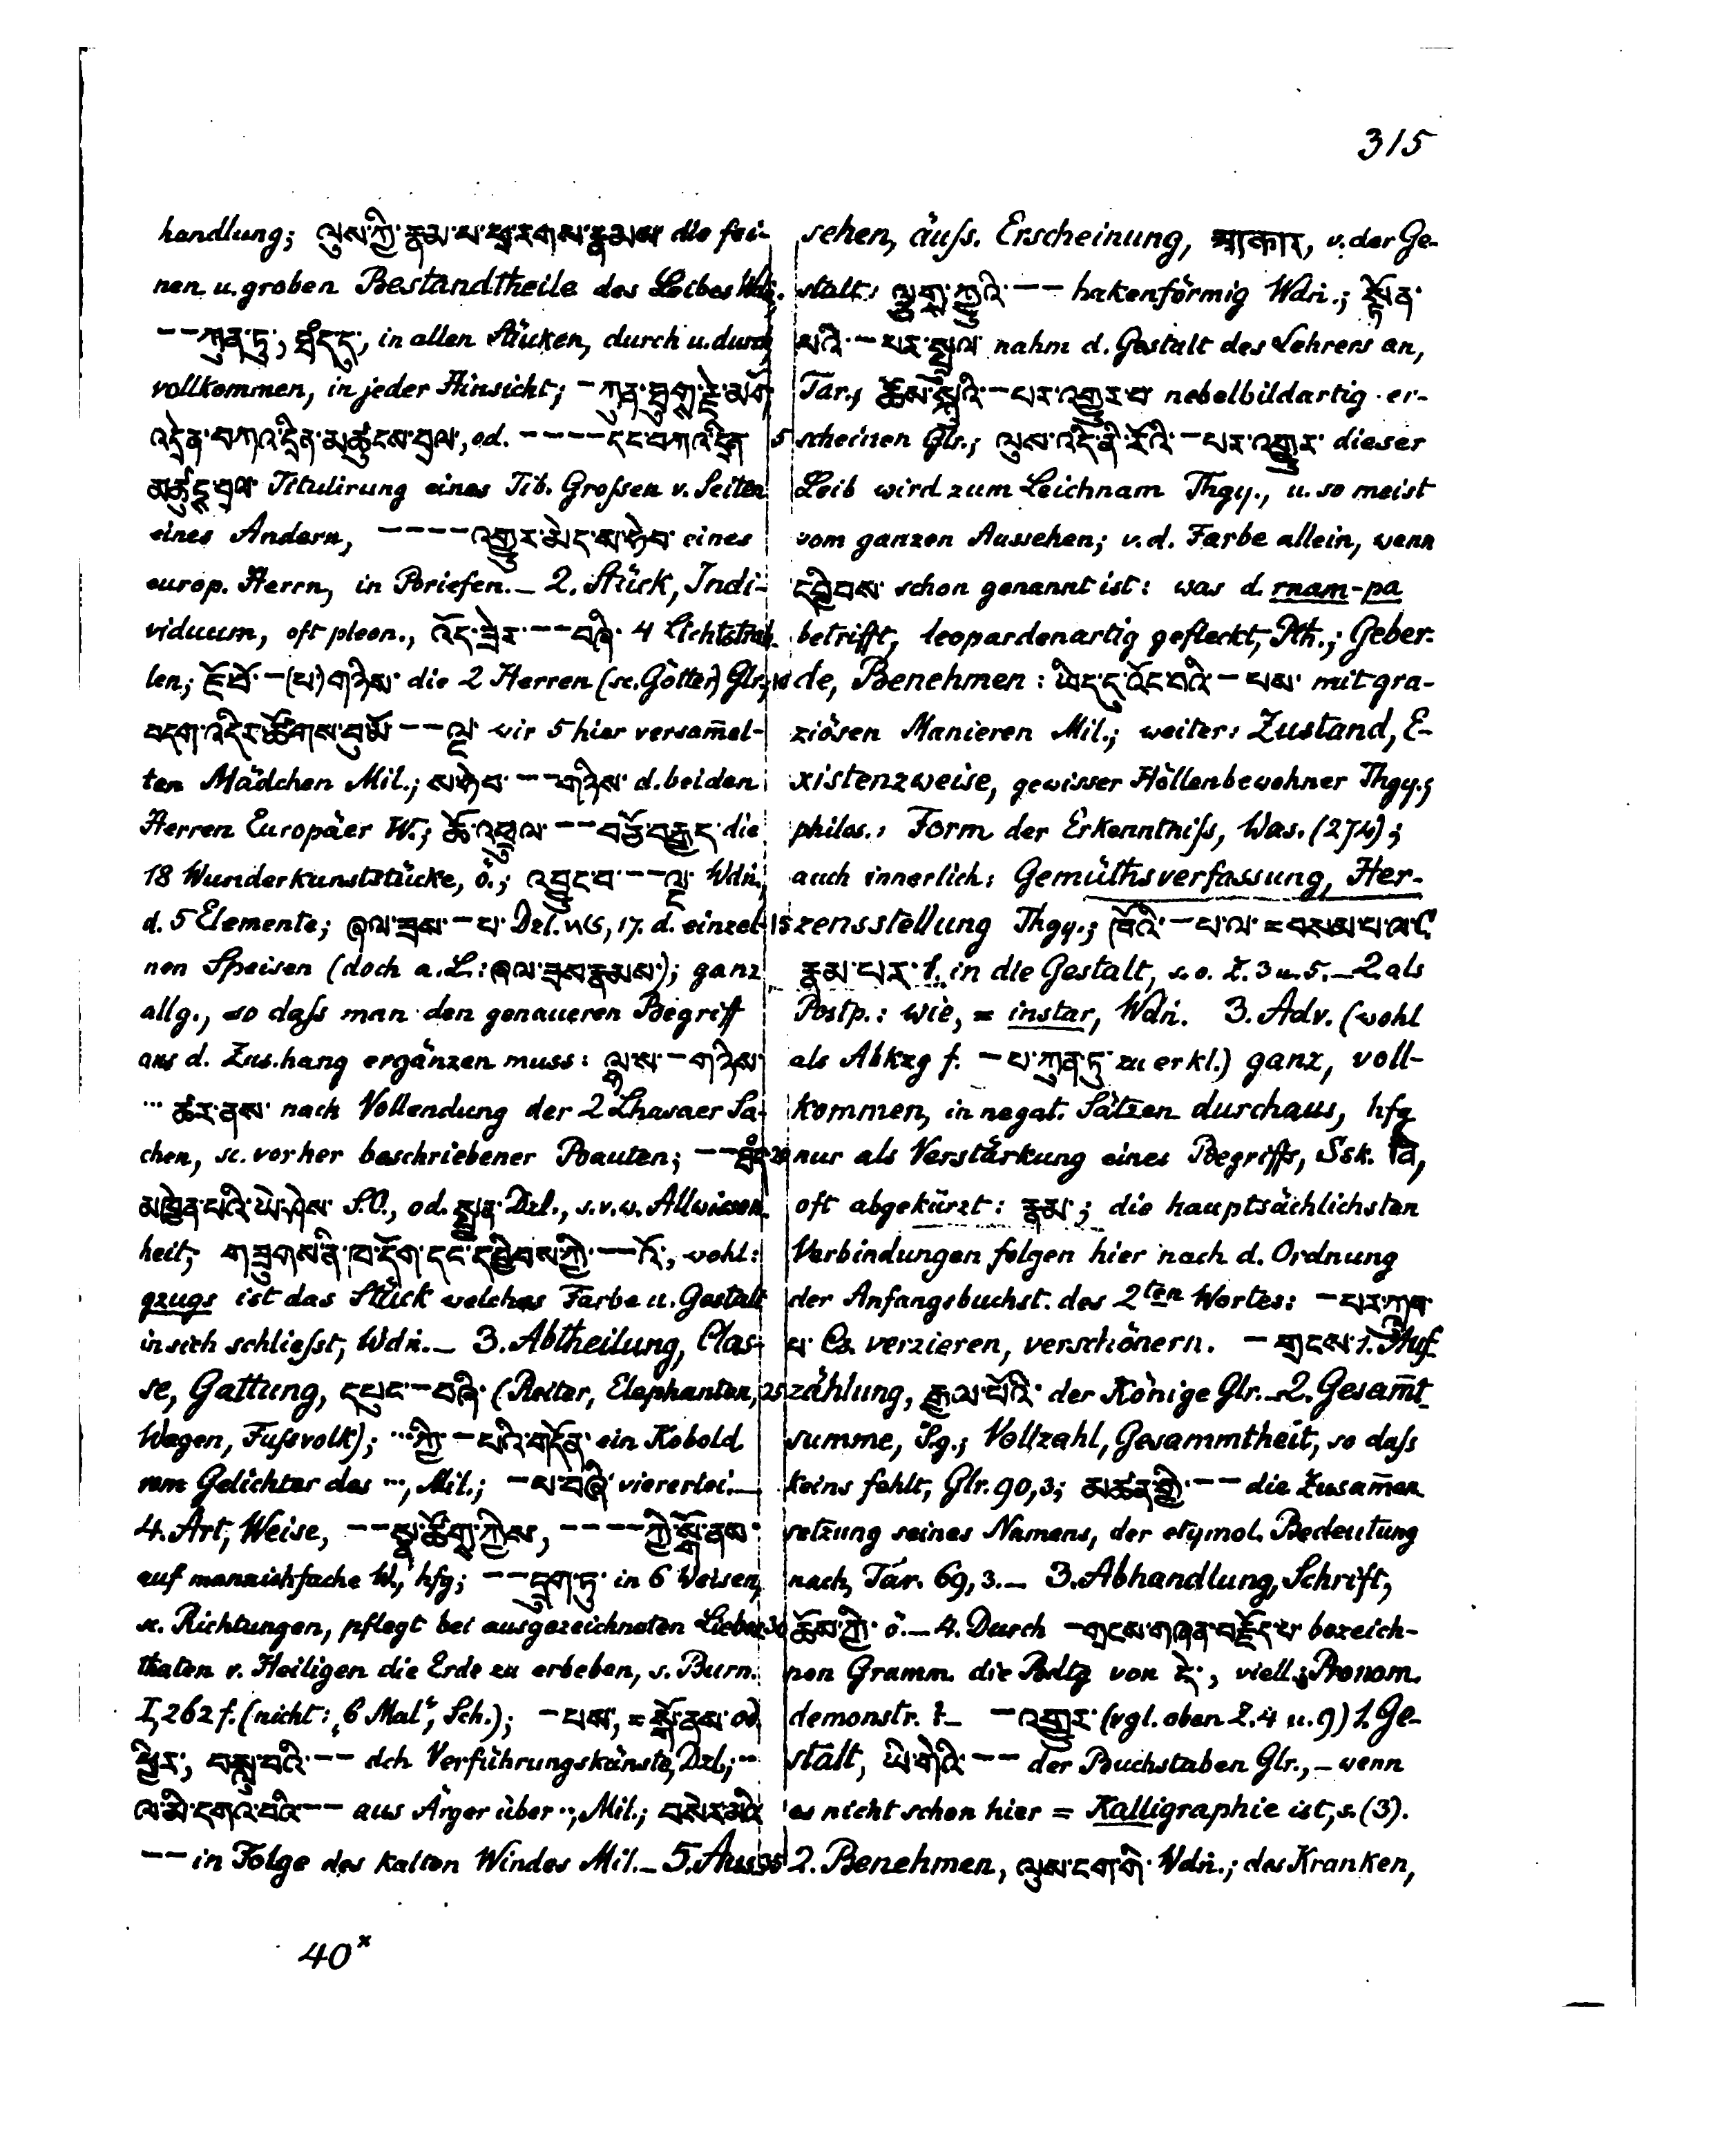 315
handlung; ལུས་ཀྱི་རྣམ་པ་ཕྲ་རགས་རྣམས die fei-
nen u. groben Bestandtheile des Leibes Wdṅ.
--ཀུན་ཏུ་, in allen Stücken, durch u. durch,
vollkommen, in jeder Hinsicht; -ཀུན་
འདྲེན་བཀའ་དྲིན་མཚུངས་བྲལ་, od. ----དང་བཀའ་དྲིན
Titulirung eines Tib. Grossen v. Seiten
eines Andern, ----འགྱུར་མེད་ས་ཧེབ་ eines
europ. Herrn, in Briefen._ 2. Stück, Indi-
viduum, oft pleon., འོད་ཟེར་--བཞི་ 4 Lichtstrah-
len; ཇོ་བོ་-(པ་)གཉིས་ die 2 Herren (sc. Götter) Glr.;
བདག་འདིར་ཚོགས་བུ་མོ་--ལྔ་ wir 5 hier versam̄el-
ten Mädchen Mil.; ས་ཧེབ་--གཉིས་ d. beiden
Herren Europäer W.; ཆོ་འཕྲུལ་--བཅོ་བརྒྱད་ die
18 Wunderkunststücke, ö.; འབྱུང་བ་--ལྔ་ Wdṅ.,
d. 5 Elemente; ཞལ་ཟས་-པ་ Dzl. 16, 17. d. einzel-
nen Speisen (doch a. L.: ཞལ་ཟས་རྣམས་); ganz
allg., so daſs man den genaueren Begriff
aus d. Zus.hang ergänzen muss: ལྷ་ས་-གཉིས་
... ཚར་ནས་ nach Vollendung der 2 Lhasaer Sa-
chen, sc. vorher beschriebener Bauten; --
མཁྱེན་པའི་ཡེ་ཤེས་ S.O., od. སྤྱན་ Dzl., s.v.w. Allwissen-
heit; གཟུགས་ནི་ཁ་དོག་དང་དབྱིབས་ཀྱི་--འོ་, wohl:
gzugs ist das Stück welches Farbe u. Gestalt
in sich schlieſst, Wdṅ._ 3. Abtheilung, Clas-
se, Gattung, དཔུང་-བཞི་ (Reiter, Elephanten,
Wagen, Fuſsvolk); ...ཀྱི་-པའི་གདོན་ ein Kobold
vom Gelichter des ..., Mil.; -པ་བཞི་ viererlei._
4. Art, Weise, --སྣ་ཚོགས་ཀྱིས་, ----ཀྱི་སྒོ་ནས་
auf mannichfache W., hfg; --དྲུག་ཏུ་ in 6 Weisen,
sc. Richtungen, pflegt bei ausgezeichneten Liebes-
thaten v. Heiligen die Erde zu erbeben, s. Burn.
I, 262 f. (nicht: „6 Mal”, Sch.); -པས་, =སྒོ་ནས་ od.
ཕྱིར་, བསླུ་བའི་-- dch Verführungskünste, Dzl.; ..
ལ་མི་དགའ་བའི་-- aus Ärger über .., Mil.; བསེར་མའི་
--in Folge des kalten Windes Mil._ 5. Aus-
sehen, äuſs. Erscheinung, आकार, v. der Ge-
stalt: ལྕགས་ཀྱུའི་-- hakenförmig Wdṅ.; སྟོན་
པའི་-པར་སྤྲུལ་ nahm d. Gestalt des Lehrers an,
Tār.; -པར་འགྱུར་བ་ nebelbildartig er-
5 scheinen Glr.; ལུས་འདི་ནི་རོའི་-པར་འགྱུར་ dieser
Leib wird zum Leichnam Thgy., u. so meist
vom ganzen Aussehen; v. d. Farbe allein, wenn
དབྱིབས་ schon genannt ist: was d. rnam-pa
betrifft, leopardenartig gefleckt, Pth.; Geber-
10 de, Benehmen: ཡིད་དུ་འོང་བའི་-པས་ mit gra-
ziösen Manieren Mil.; weiter: Zustand, E-
xistenzweise, gewisser Höllenbewohner Thgy.;
philos.: Form der Erkenntniſs, Was. (274);
auch innerlich: Gemüthsverfassung, Her-
15 zensstellung Thgy.; ཁྲོའི་-པ་ལ་ =བསམ་པ་ལ་ C.
རྣམ་པར་ 1. in die Gestalt, s. o. Z. 3 u. 5._2. als
Postp.: wie, = instar, Wdṅ. 3. Adv. (wohl
als Abkzg f. -པ་ཀུན་ཏུ་ zu erkl.) ganz, voll-
kommen, in negat. Sätzen durchaus, hfg
20 nur als Verstärkung eines Begriffs, Ssk. वि,
oft abgekürzt: རྣམ་; die hauptsächlichsten
Verbindungen folgen hier nach d. Ordnung
der Anfangsbuchst. des 2ten Wortes: -པར་
པ་ Cs. verzieren, verschönern. -གྲངས་ 1. Auf-
25 zählung, རྒྱལ་པོའི་ der Könige Glr._2. Gesam̄t-
summe, S.g.; Vollzahl, Gesammtheit, so daſs
keins fehlt, Glr. 90, 3; མཚན་གྱི་-- die Zusam̄en-
setzung seines Namens, der etymol. Bedeutung
nach, Tār. 69, 3._ 3. Abhandlung, Schrift,
30 ཆོས་ཀྱི་ ö._4. Durch -གྲངས་གཞན་བརྗོད་པ་ bezeich-
nen Gramm. die Bedtg von དེ་, viell.: Pronom.
demonstr. ?_ -འགྱུར་ (vgl. oben Z. 4 u. 9) 1. Ge-
stalt, ཡི་གེའི་-- der Buchstaben Glr., - wenn
es nicht schon hier = Kalligraphie ist, s. (3).
35 2. Benehmen, ལུས་ངག་གི་ Wdṅ.; des Kranken,
40*